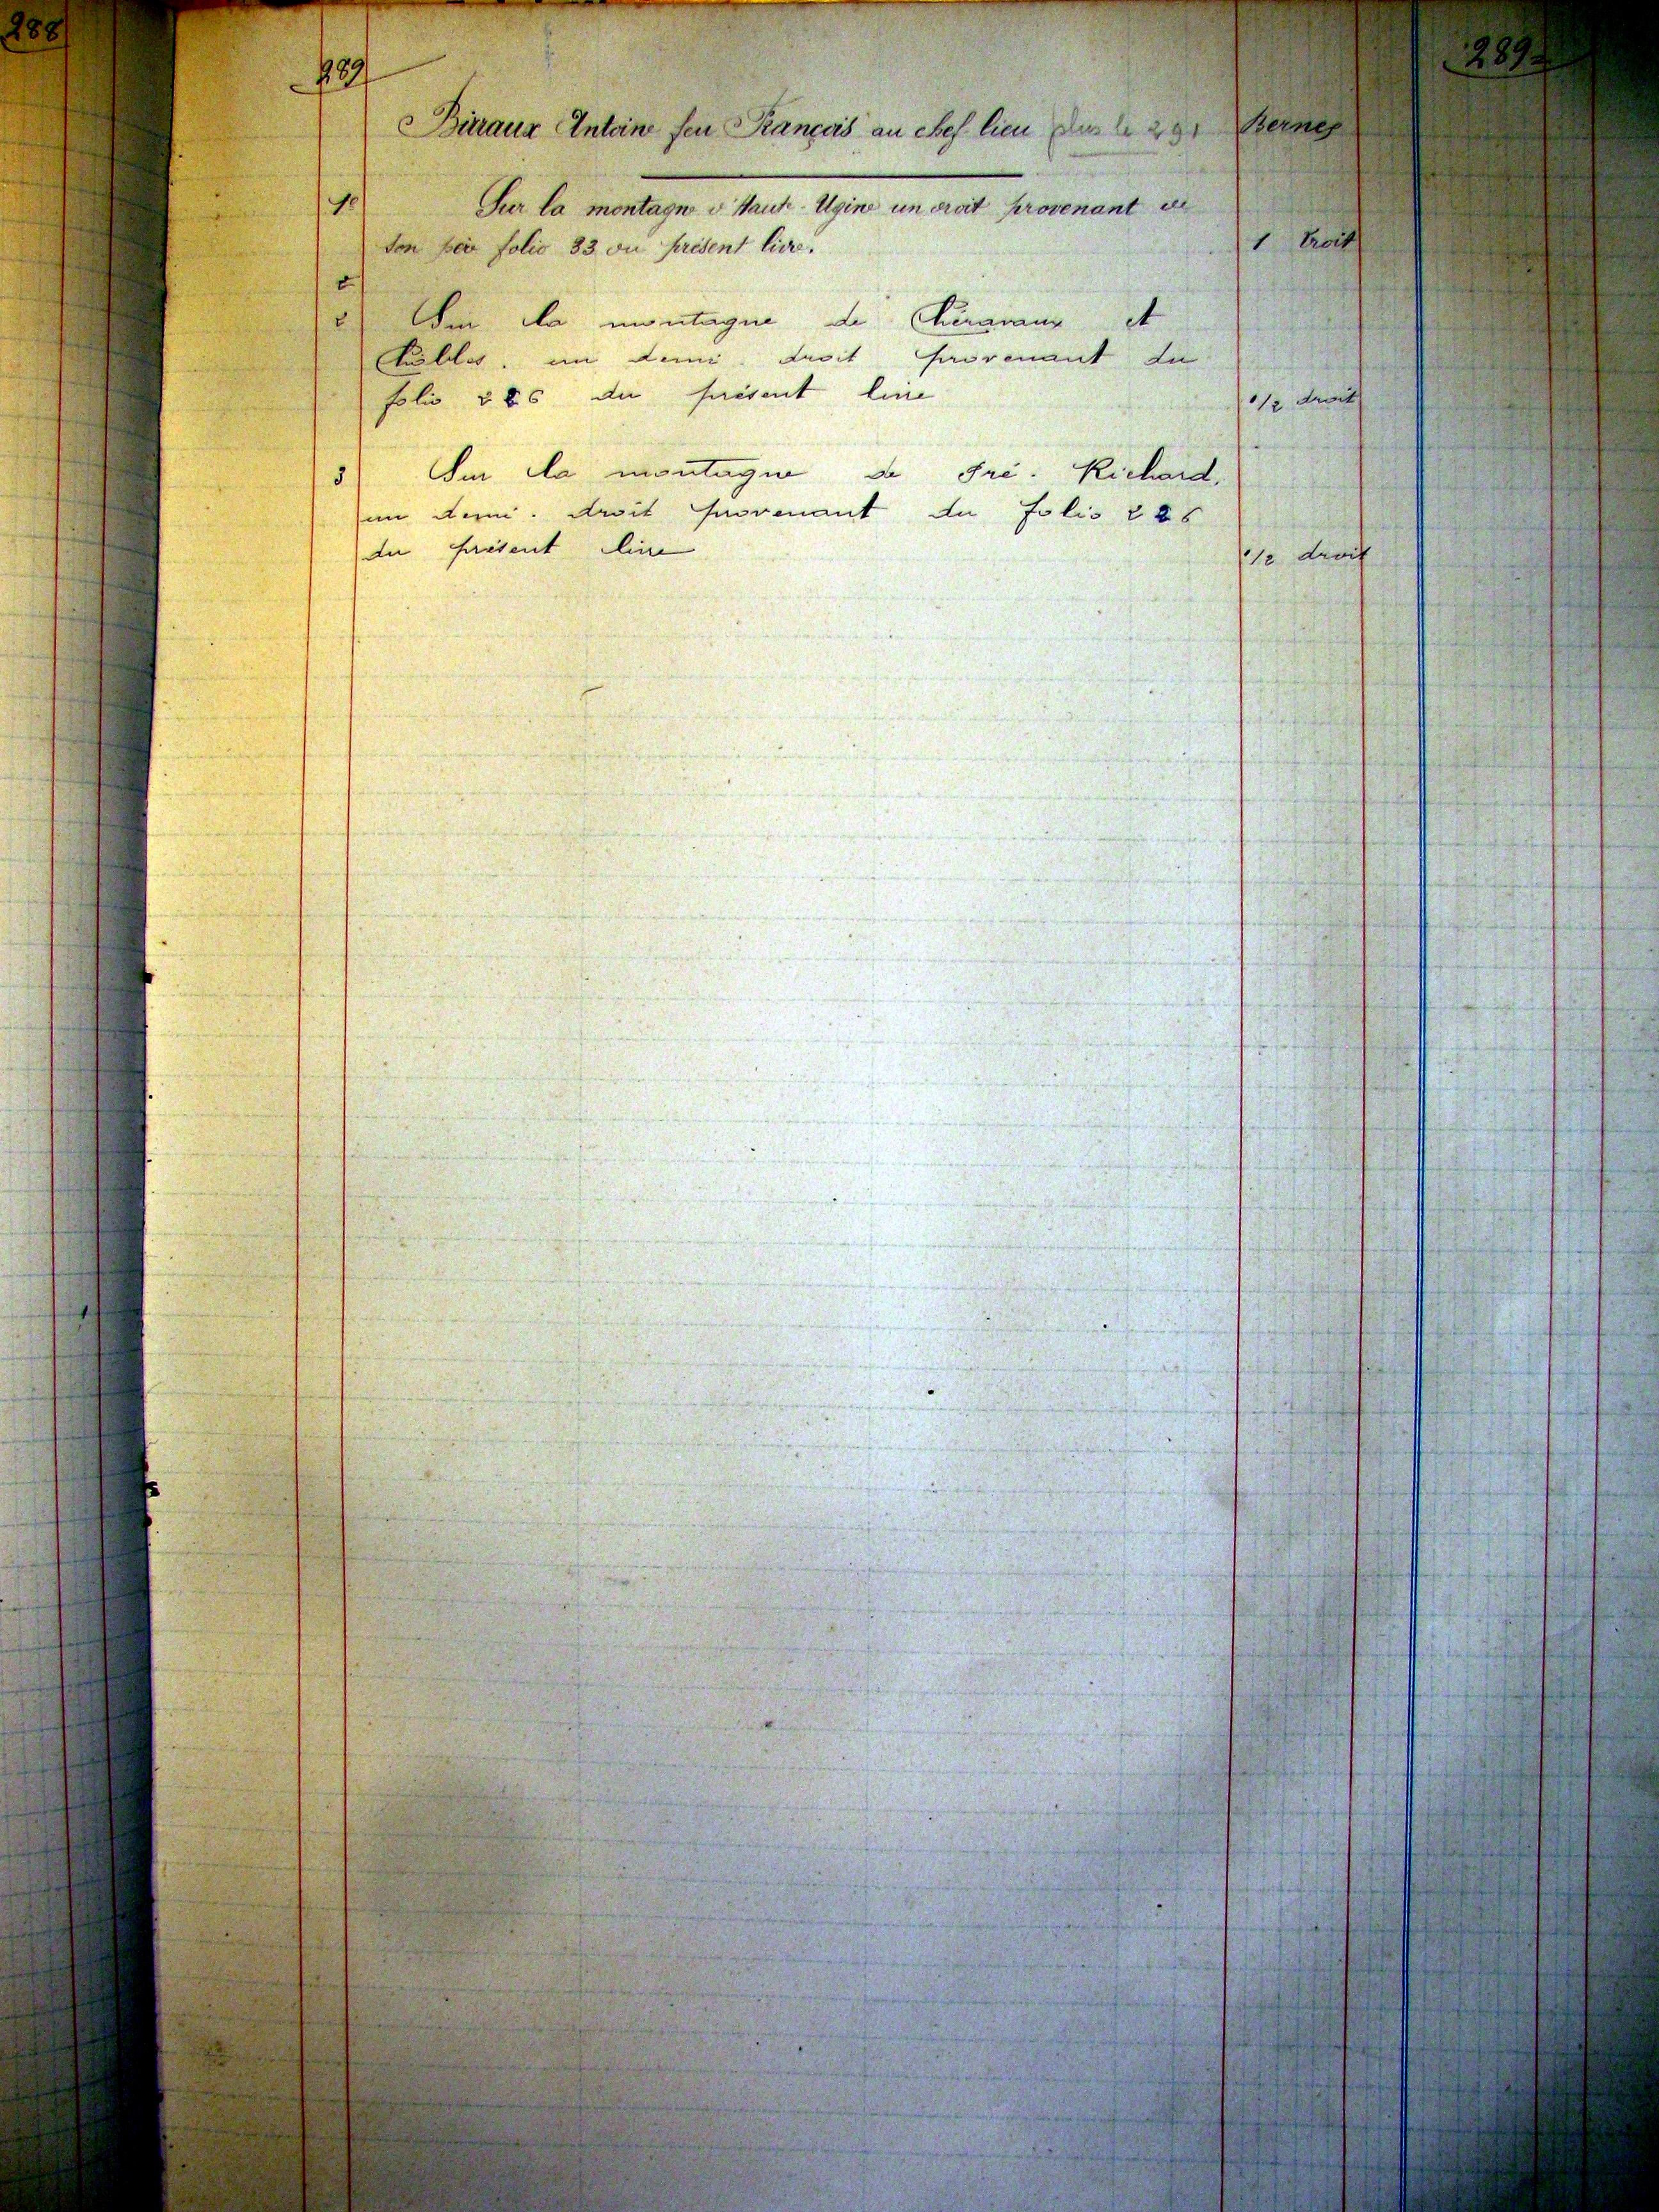 288
289
289
Birraux Antoine feu François au chef lieu plus le 291 Bernex
1e Sur la montagne d'Haute-Ugine un droit provenant de
son père folio 83 du présent livre. 1 droit
2
2 Sur la montagne de Chéravaux et
un demi-droit provenant du
folio 226 du présent livre 1/2 droit
3 Sur la montagne de Pré-Richard,
un demi-droit provenant du folio 226
du présent livre 1/2 droit